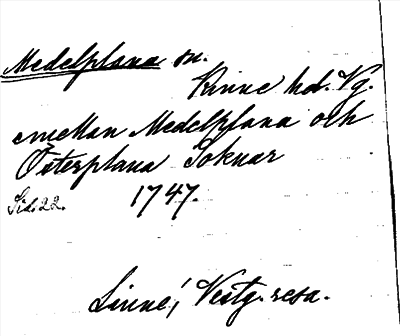 Medelplana sn.
Kinne hd. Vg.
emellan Medelplana och
Österplana Soknar
Sid. 22. 1747.
Linné, Vestg. resa.